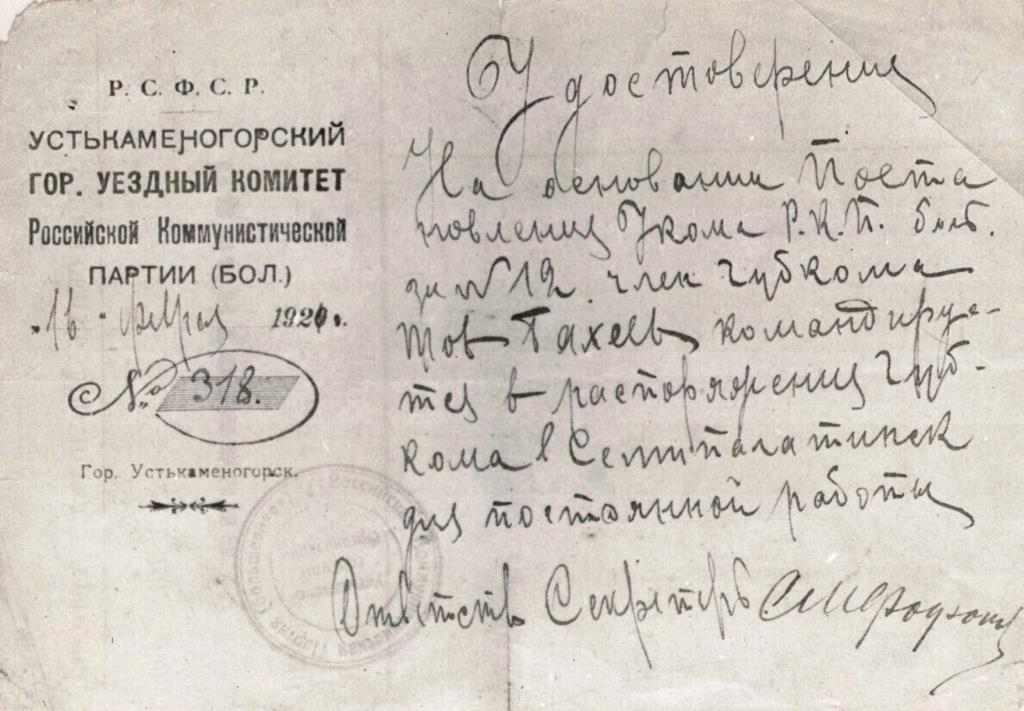 Р. С. Ф. С. Р.
УСТЬКАМЕНОГОРСКИЙ
ГОР. УЕЗДНЫЙ КОМИТЕТ
Российской Коммунистической
ПАРТИИ (БОЛ.)
"16" февраля 1920 г.
№ 318.
Гор. Устькаменогорск.
Удостоверение
На основании Поста
новления Укома Р.К.П. больб.
за № 12. член Губкома
тов Тахеев командируе-
тся в распоряжение Губ-
кома в Семипалатинск
для постоянной работы
Ответств Секретарь